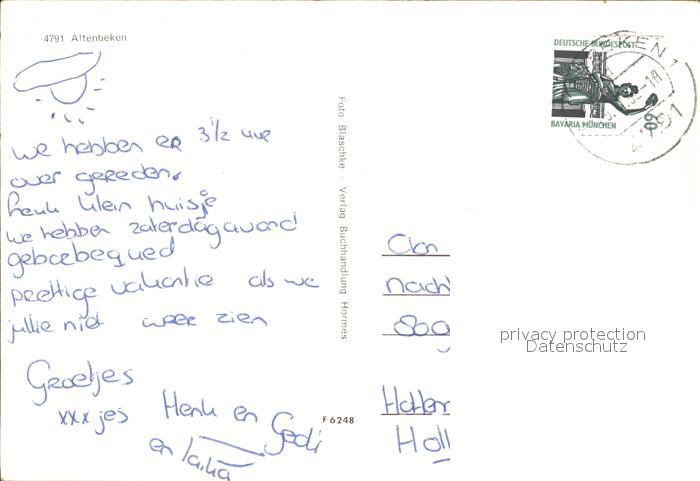 4791 Altenbeken
we hebben er 3½ uur
over gereden.
leuk klein huisje
we hebben zaterdagavond
gebarbequed
prettige vakantie als we
jullie niet weer zien
Groetjes
xxx jes Henk en Gedi
en
Foto Blaschke · Verlag Buchhandlung Hormes
F 6248
DEUTSCHE BUNDESPOST
BAVARIA MÜNCHEN
60
Holl
privacy protection
Datenschutz